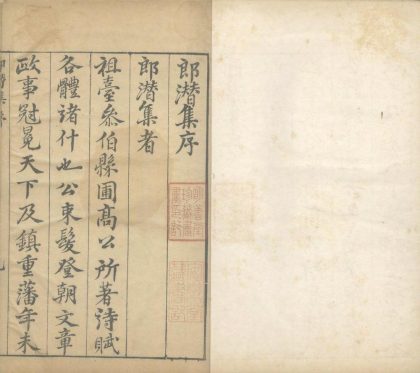 郎潜集序
郎潜集者
祖臺叅伯縣圃髙公所著诗賦
各體諸什也公束髮登朝文章
政事冠冕天下及鎮重藩年未